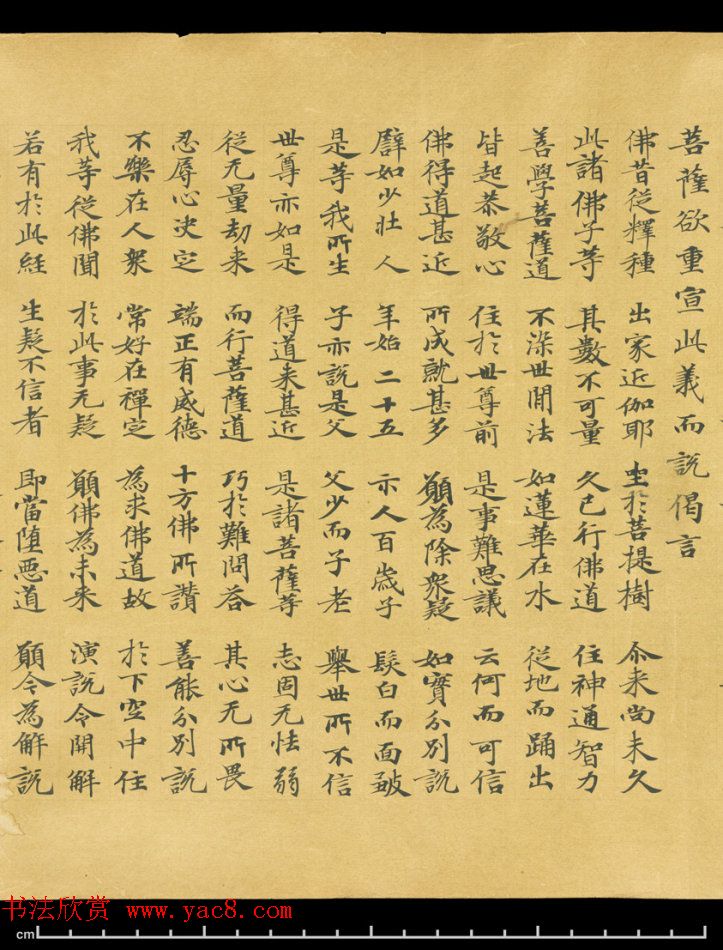 菩薩欲重宣此義而說偈言
佛昔從釋種 出家近伽耶 坐於菩提樹 尒來尚未久
此諸佛子等 其數不可量 久已行佛道 住神通智力
善學菩薩道 不染世間法 如蓮華在水 從地而踊出
皆起恭敬心 住於世尊前 是事難思議 云何而可信
佛得道甚近 所成就甚多 願為除衆疑 如實分別說
譬如少壯人 年始二十五 示人百歲子 髮白而面皺
是等我所生 子亦說是父 父少而子老 舉世所不信
世尊亦如是 得道來甚近 是諸菩薩等 志固无怯弱
從无量劫來 而行菩薩道 巧於難問荅 其心无所畏
忍辱心決定 端正有威德 十方佛所讚 善能分別說
不樂在人衆 常好在禪定 為求佛道故 於下空中住
我等從佛聞 於此事无疑 願佛為未來 演說令開解
若有於此經 生疑不信者 即當墮惡道 願今為解說
书法欣赏 www.yac8.com
cm